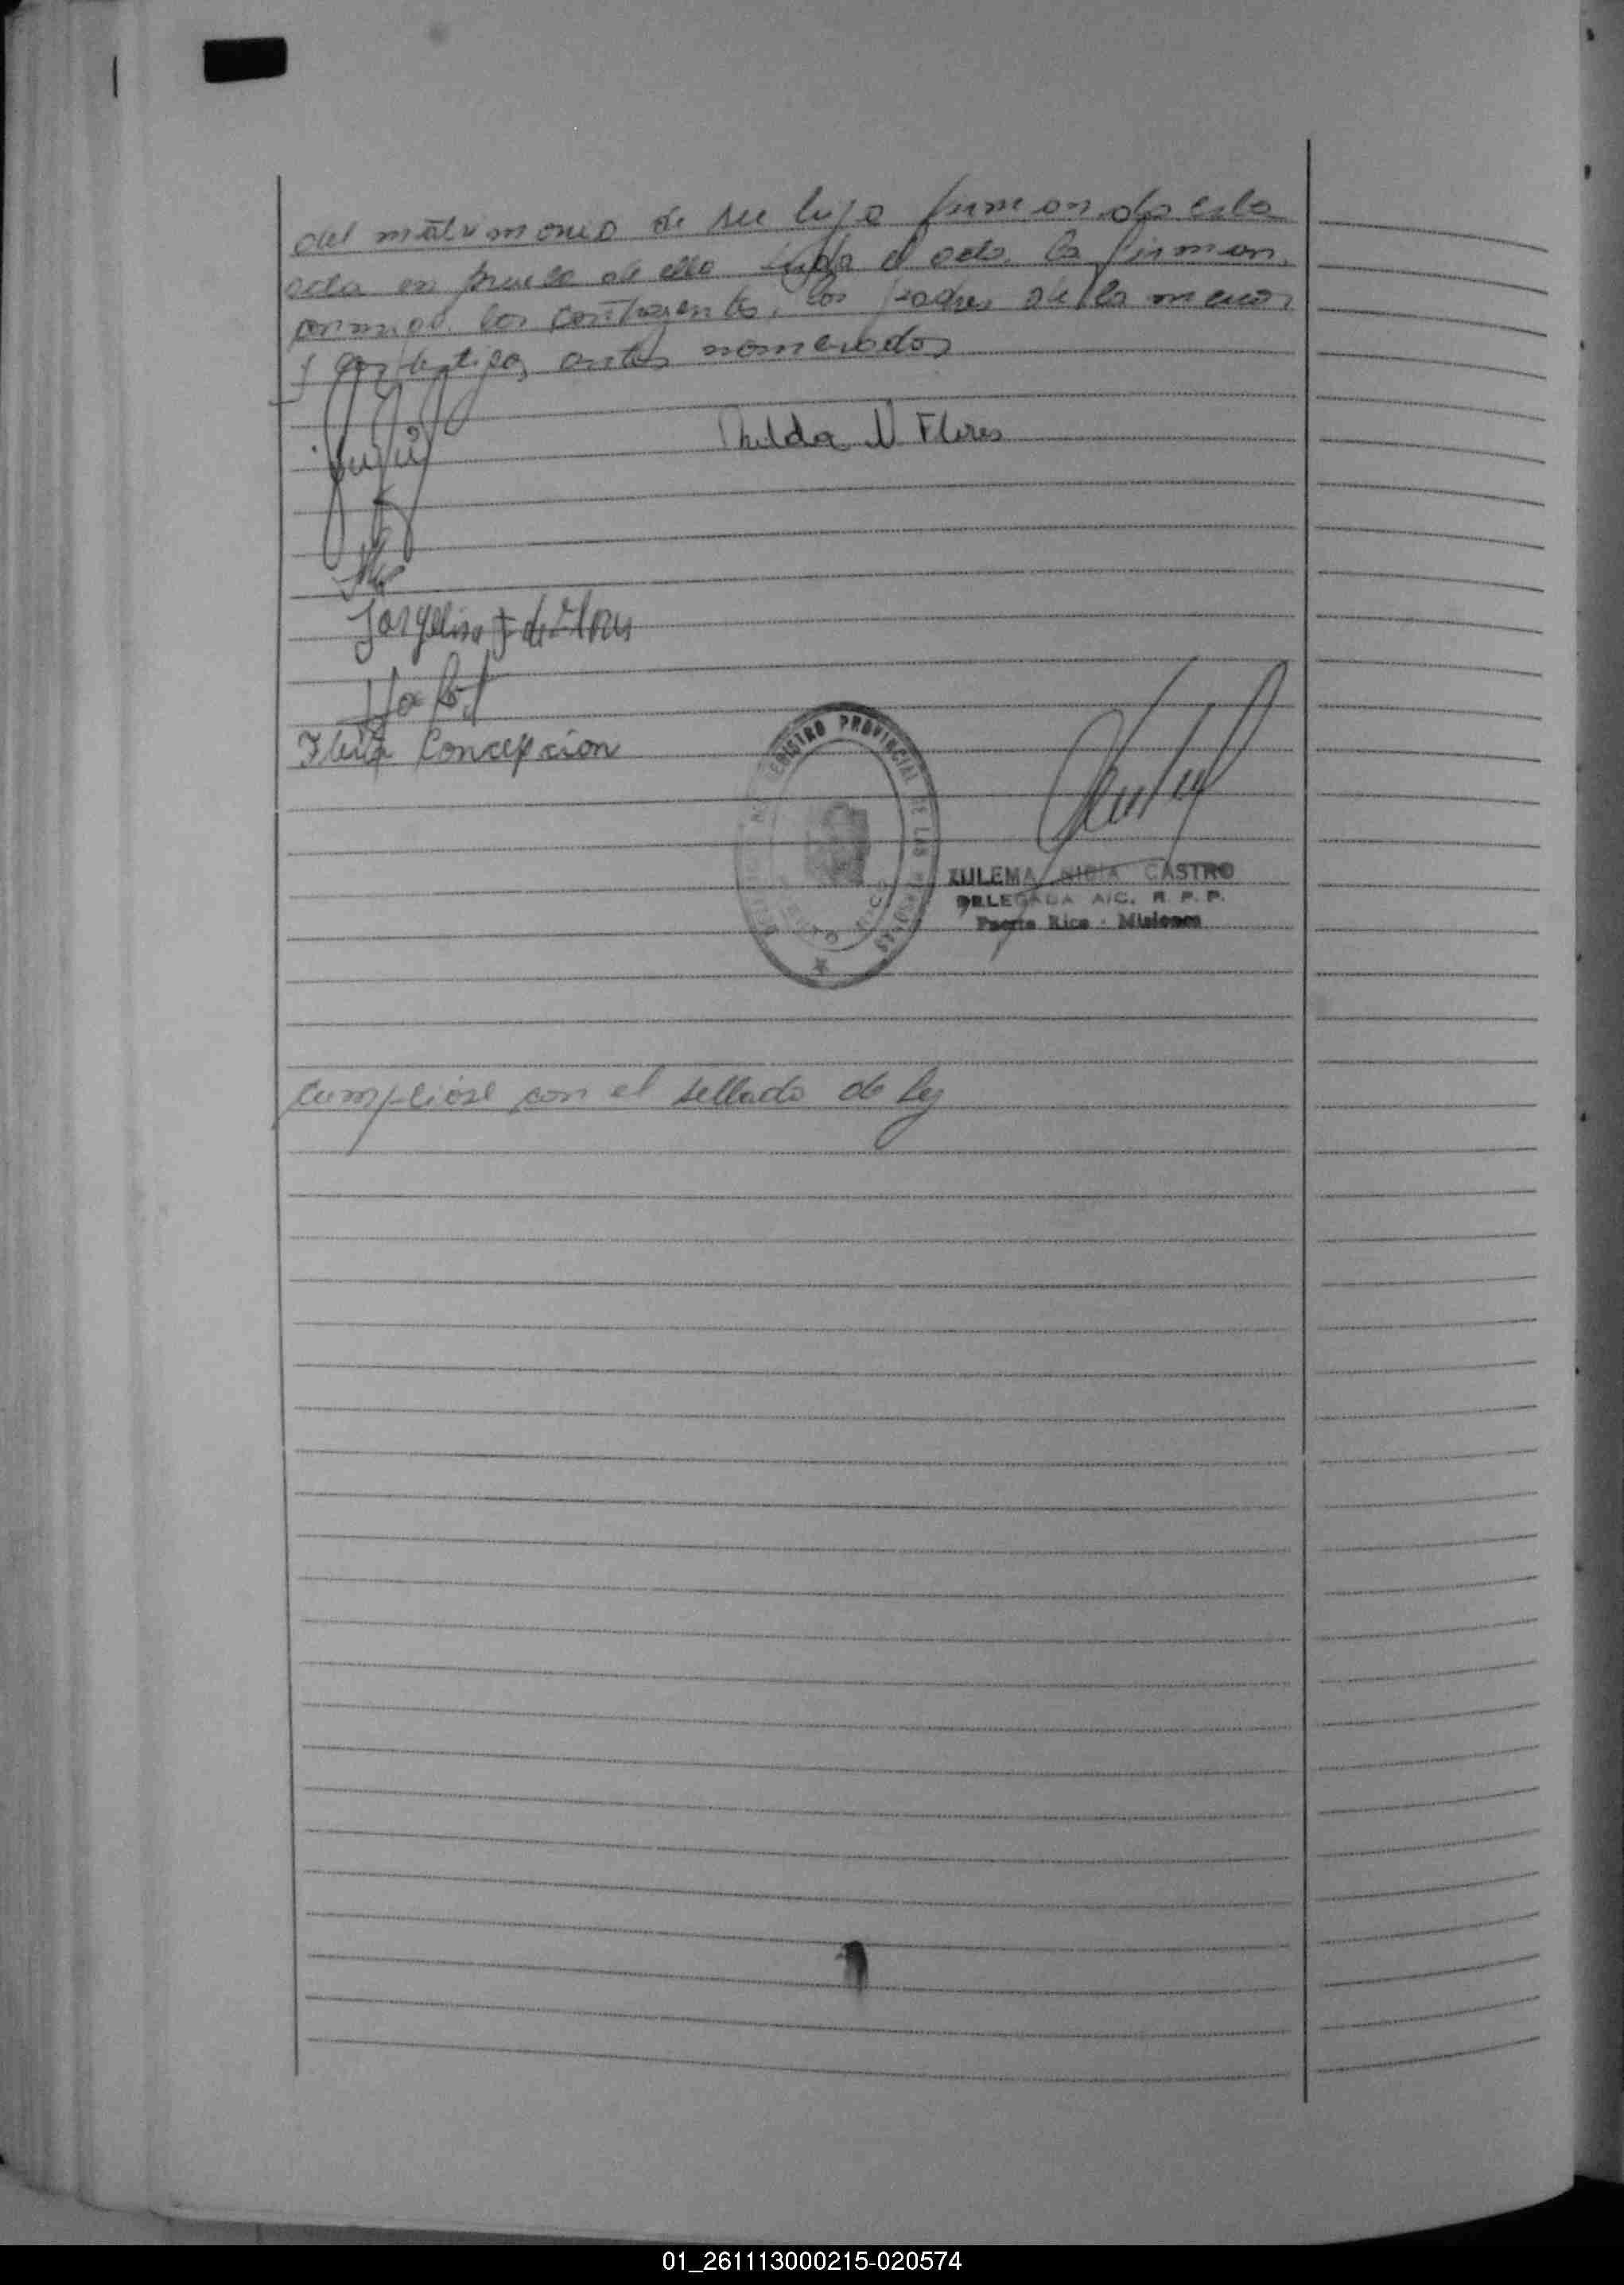 del matrimonio de su hija firmando esta
acta en prueba de ello Leída el acta, la firman
conmigo los contrayentes, los padres de la menor
y los testigos antes nomenados
Thilda N Flores
Jorgelina F. de Flores
Fleita Concepcion
REGISTRO PROVINCIAL DE LAS
ZULEMA NIDIA CASTRO
DELEGADA A/C. R. P. P.
Puerto Rico - Misiones
Cumpliose con el sellado de Ley
01_261113000215-020574